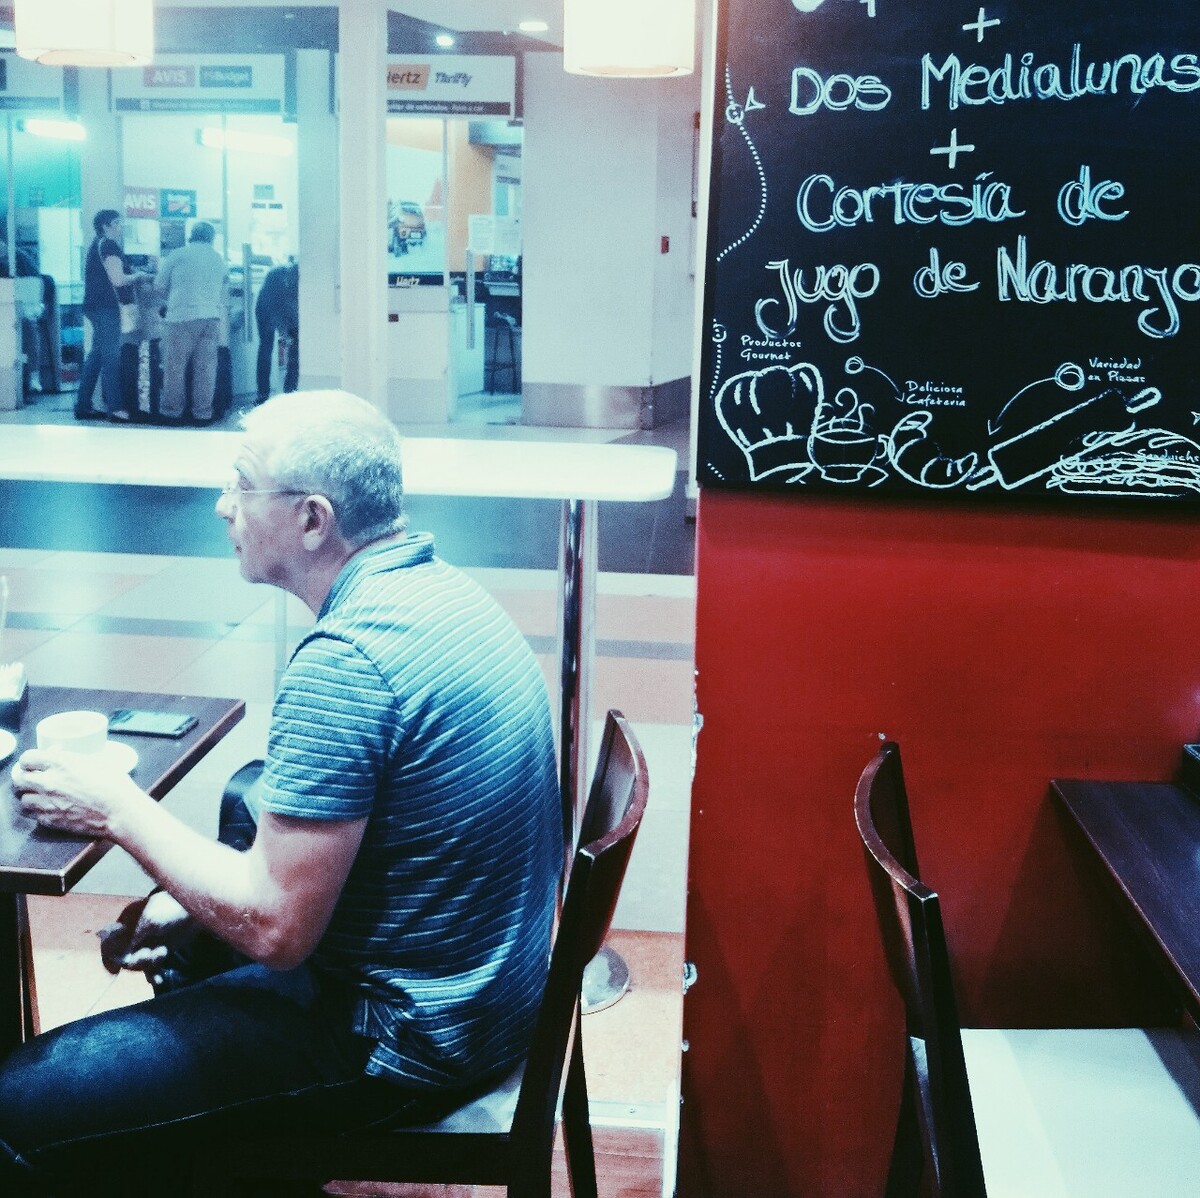 +
Dos Medialunas
+
Cortesía de
Jugo de Naranja
Productos
Gourmet
Deliciosa
Cafeteria
Variedad
en Pizzas
Sandwichs
AVIS Budget
Hertz Thrifty
AVIS Budget
Hertz